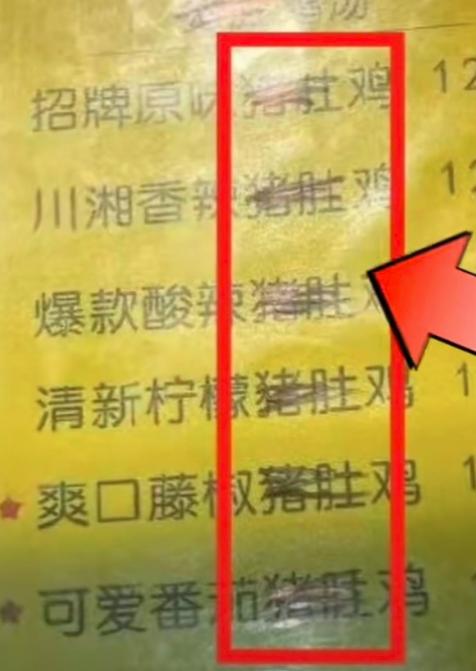 汤
招牌原味猪肚鸡 12
川湘香辣猪肚鸡 12
爆款酸辣猪肚
清新柠檬猪肚鸡 1
爽口藤椒猪肚鸡 1
可爱番茄猪肚鸡